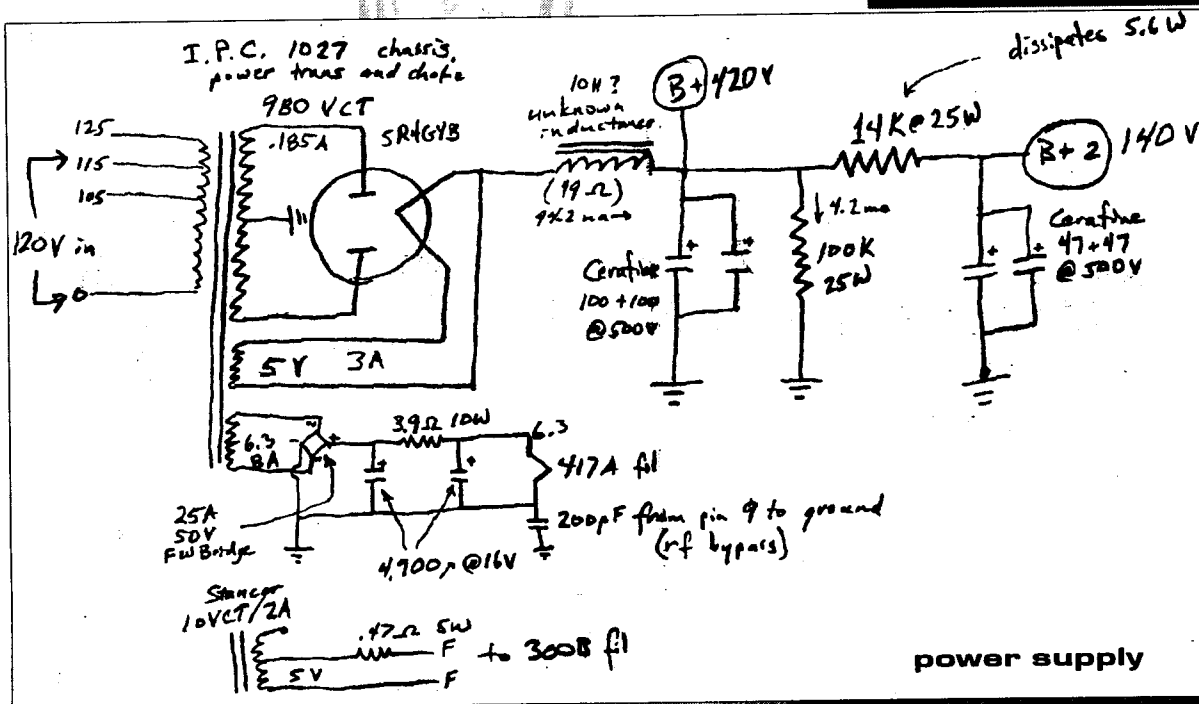 I.P.C. 1027 chassis,
power trans and choke
980 VCT
.185A
5R4GYB
125
115
105
120V in
0
5V 3A
10H?
unknown
inductance
(19Ω)
94.2 ma→
B+ 420V
Cerafine
100+100
@500V
4.2 ma
100K
25W
dissipates 5.6W
14K@25W
B+ 2 140V
Cerafine
47+47
@500V
6.3
8A
3.9Ω 10W
6.3
417A fil
25A
50V
FW Bridge
4,700µ@16V
200pF from pin 9 to ground
(rf bypass)
Stancor
10VCT/2A
.47Ω 5W
5V
F
F
to 300B fil
power supply